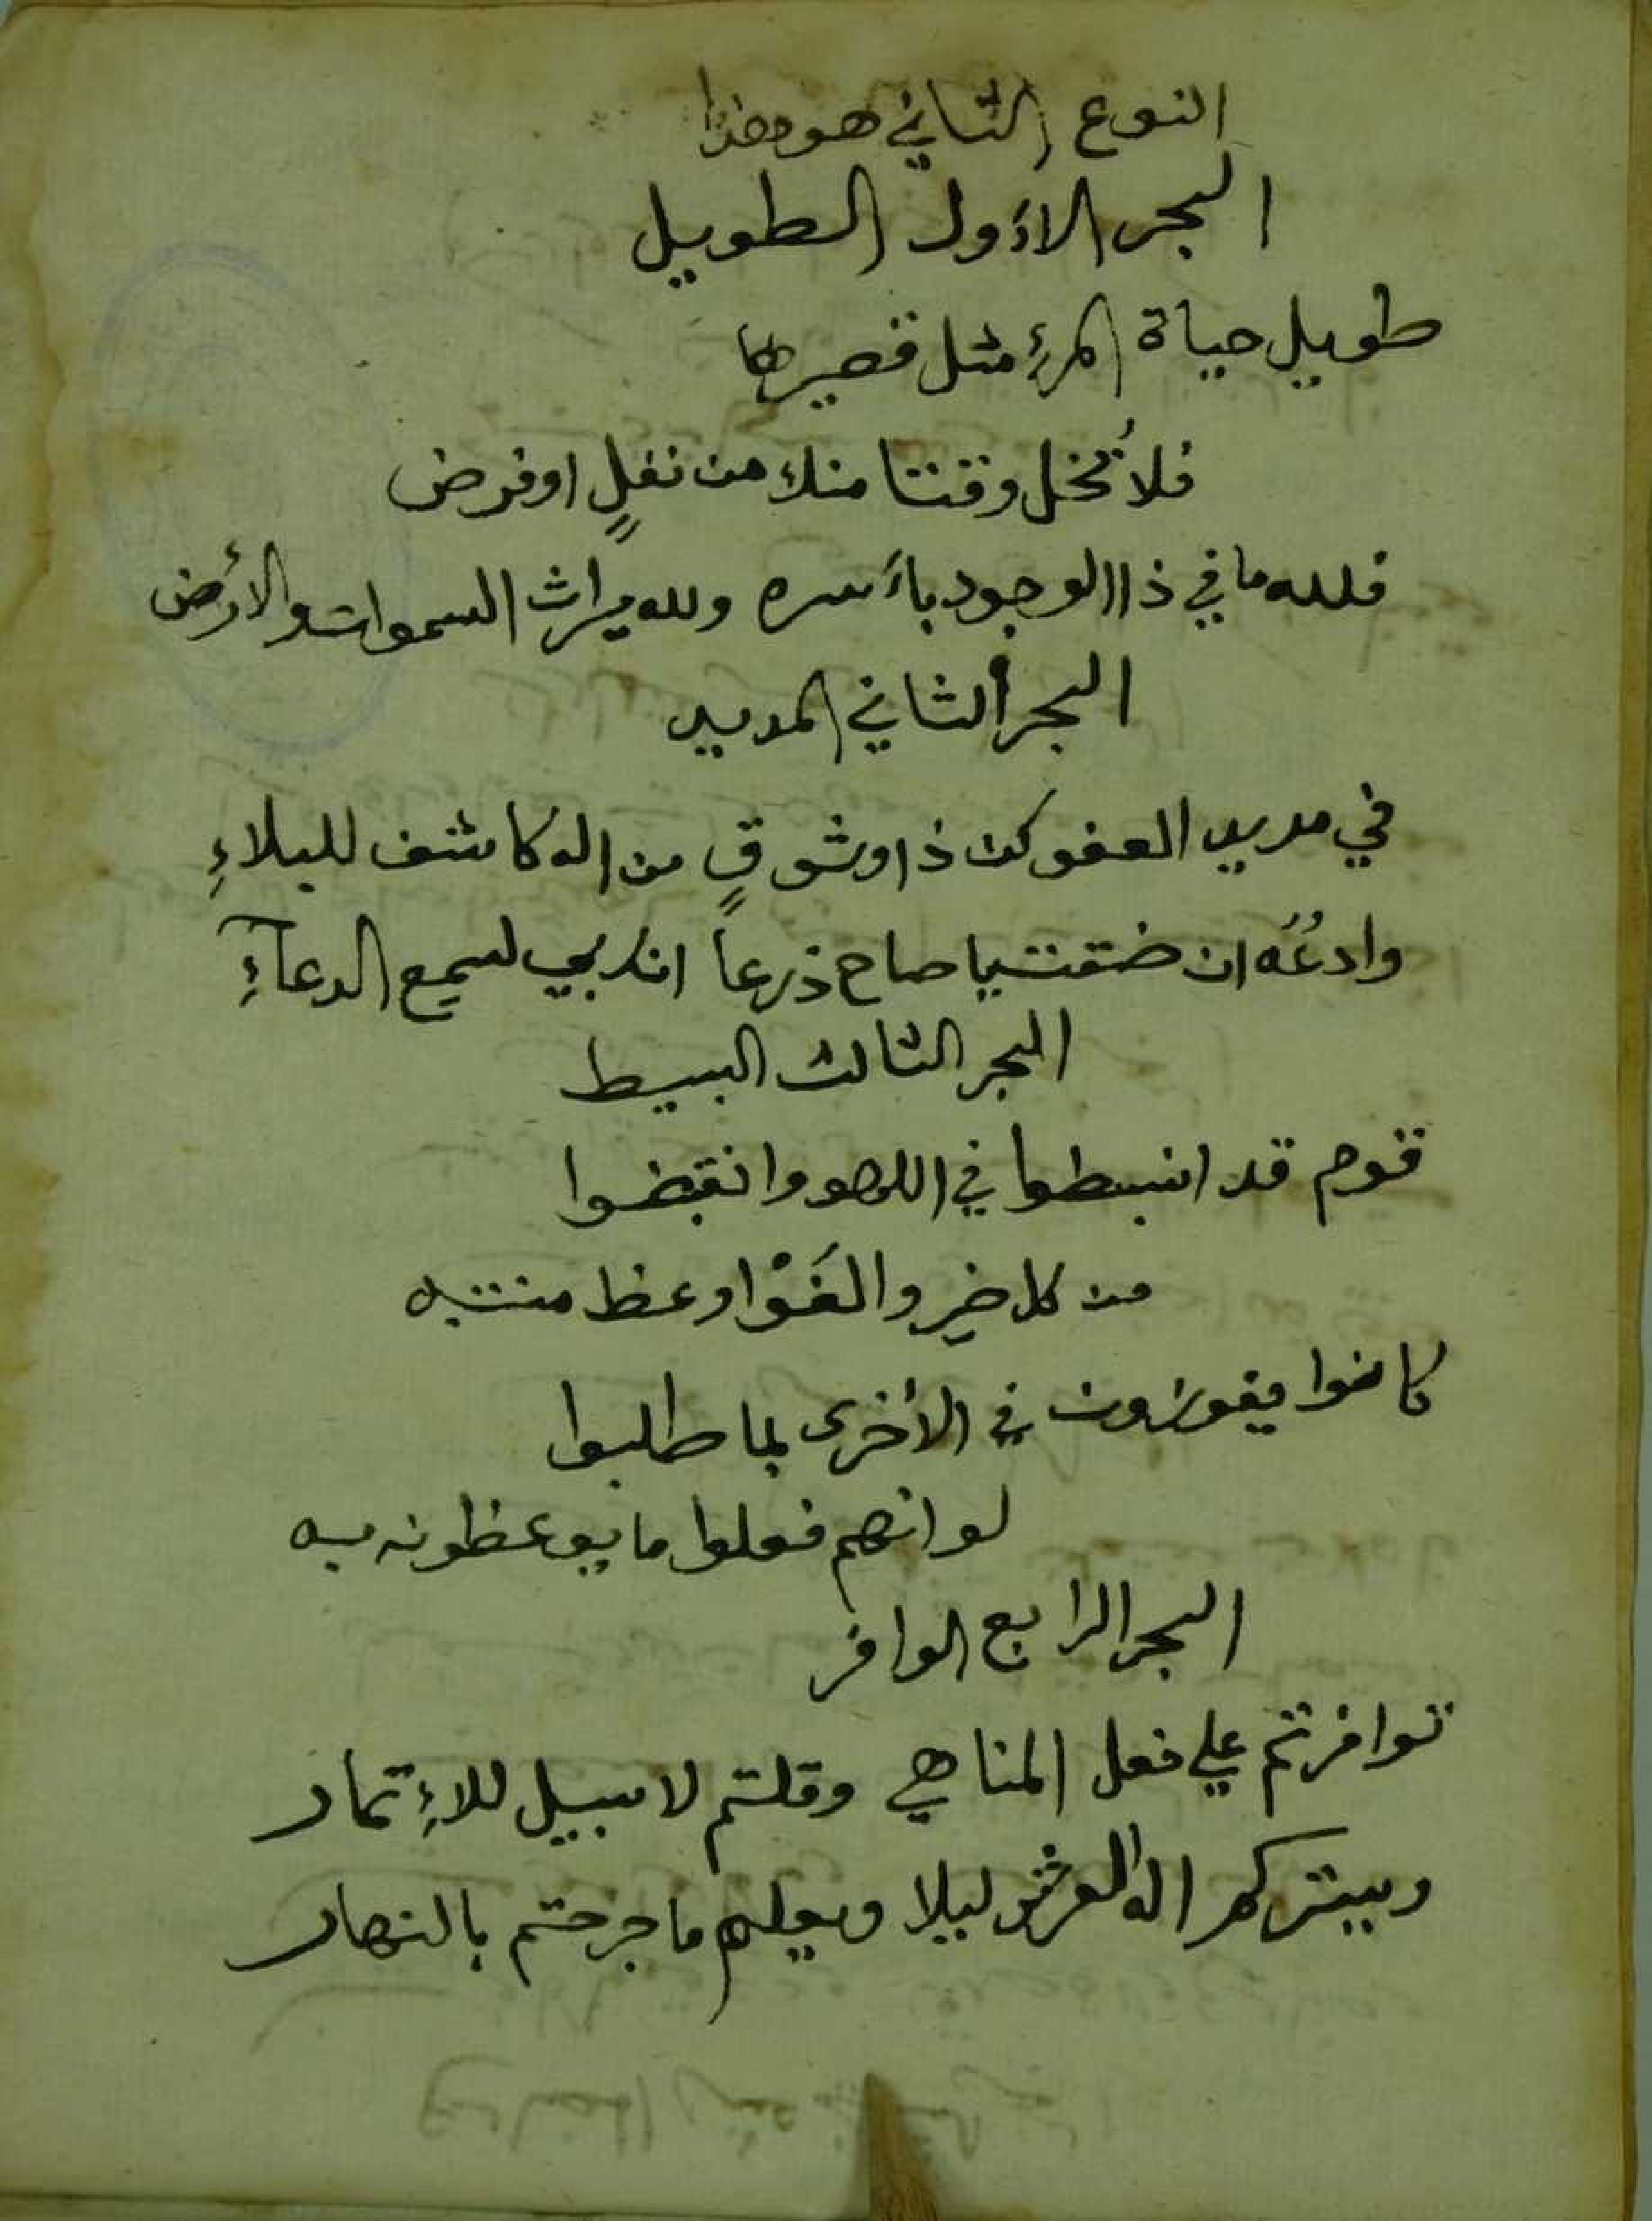 النوع الثاني هو هذا
البحر الاول الطويل
طويل حياة المرءِ مثل قصيرها
فلا تُخل وقتا منك من نفلٍ او فرض
فلله ما في ذا الوجود باَسره ولله ميراث السموات والأرض
البحر الثاني المديد
في مديد العفو كن ذا وشوقٍ من اله كاشف للبلاءِ
وادعُه ان ضقت يا صاح ذرعاً ان ربي لسميع الدعآءِ
البحر الثالث البسيط
قوم قد انبسطوا في اللهو وانقبضوا
من كل خيرٍ والغَوْا وعظ منتبه
كانوا يفوزون في الأخرى بما طلبوا
لو انهم فعلوا ما يوعظون به
البحر الرابع الوافر
توافرتم على فعل المناهي وقلتم لا سبيل للاِءتمار
ويستركم اله العرش ليلا ويعلم ما جرحتم بالنهار